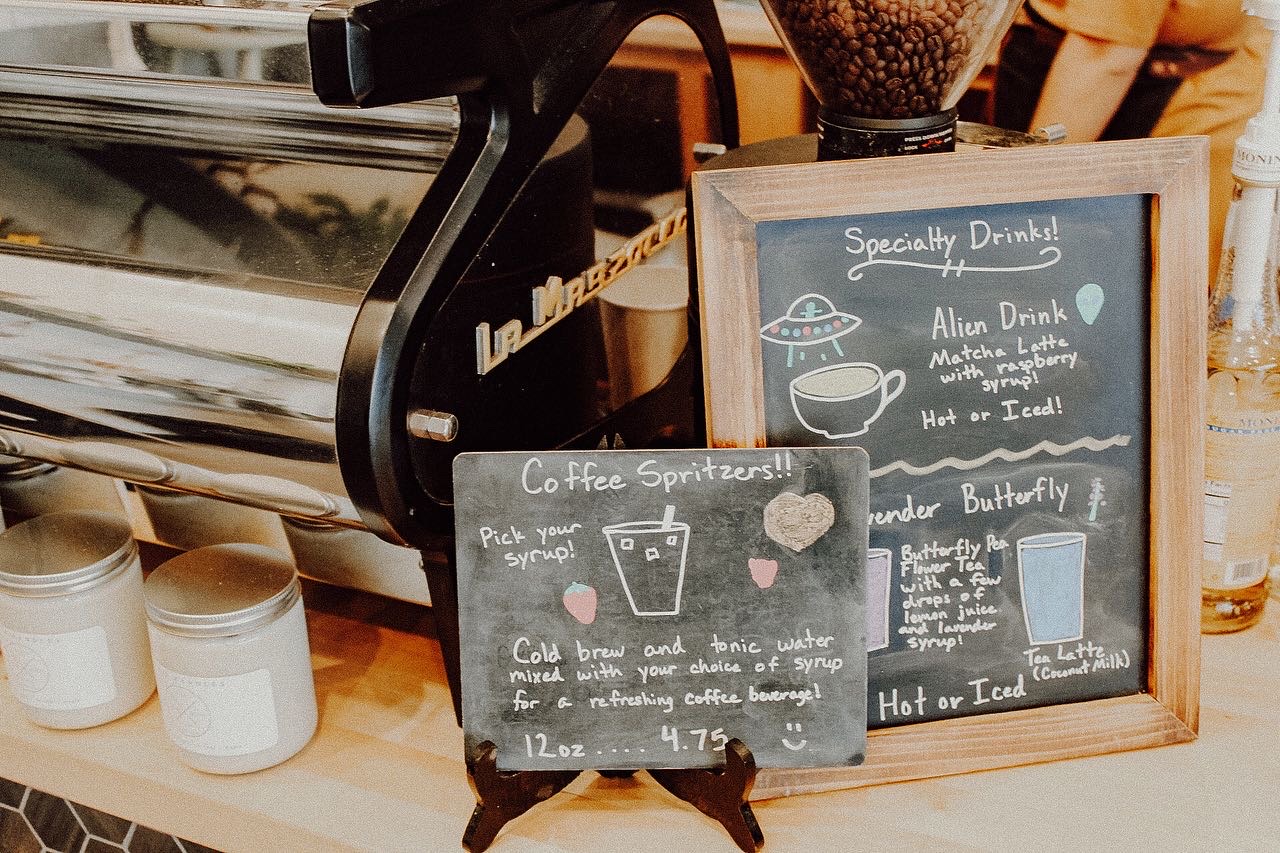 La Marzocco
Specialty Drinks!
Alien Drink
Matcha Latte
with raspberry
syrup!
Hot or Iced!
Butterfly
Butterfly Pea
Flower Tea
with a few
drops of
lemon juice
and lavender
syrup!
Tea Latte
(Coconut Milk)
Hot or Iced
Coffee Spritzers!!
Pick your
syrup!
Cold brew and tonic water
mixed with your choice of syrup
for a refreshing coffee beverage!
12oz .... 4.75
MONIN